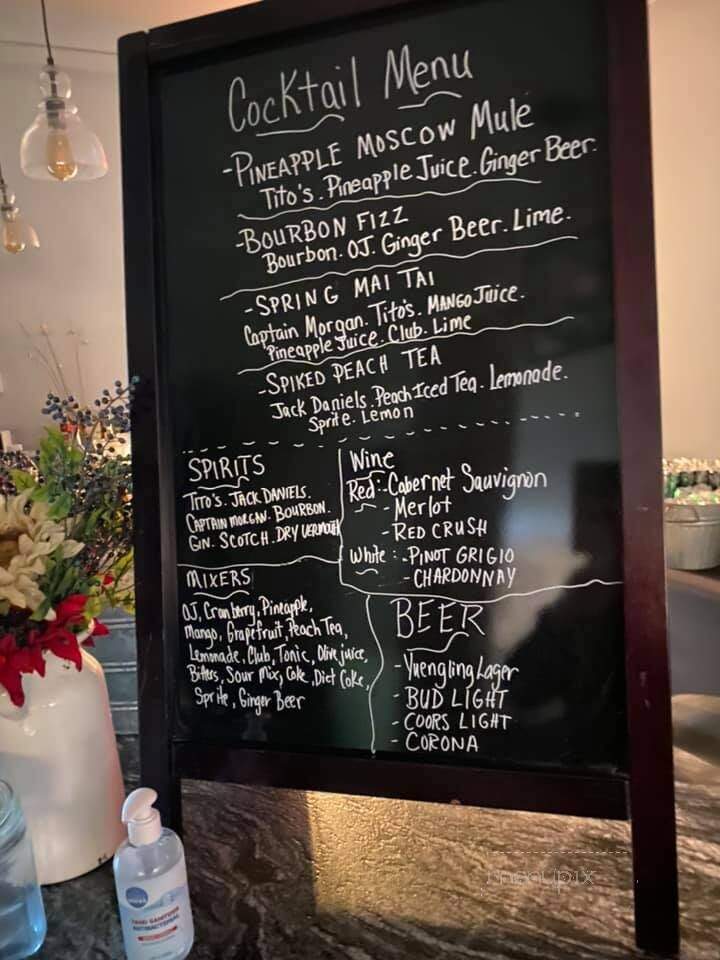 Cocktail Menu
-PINEAPPLE MOSCOW Mule
Tito's. Pineapple Juice. Ginger Beer.
-BOURBON FIZZ
Bourbon. OJ. Ginger Beer. Lime.
-SPRING MAI TAI
Captain Morgan. Tito's. MANGO Juice.
Pineapple Juice. Club. Lime
-SPIKED PEACH TEA
Jack Daniels. Peach Iced Tea. Lemonade.
Sprite. Lemon
SPIRITS
TITO'S. JACK DANIELS.
CAPTAIN MORGAN. BOURBON.
GIN. SCOTCH. DRY VERMOUTH
Wine
Red:-Cabernet Sauvignon
-Merlot
-RED CRUSH
White:-PINOT GRIGIO
-CHARDONNAY
MIXERS
OJ, Cranberry, Pineapple,
Mango, Grapefruit, Peach Tea,
Lemonade, Club, Tonic, Olive juice,
Bitters, Sour Mix, Coke, Diet Coke,
Sprite, Ginger Beer
BEER
-Yuengling Lager
-BUD LIGHT
-COORS LIGHT
-CORONA
HAND SANITIZER
ANTIBACTERIAL